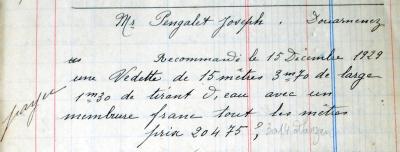 Mr Pengalet Joseph. Douarnenez
Recommandé le 15 Décembre 1929
une Vedette de 15 mètres 3m70 de large
payé
1m30 de tirant d'eau avec un
membrure franc tout les mètres
prix 20475